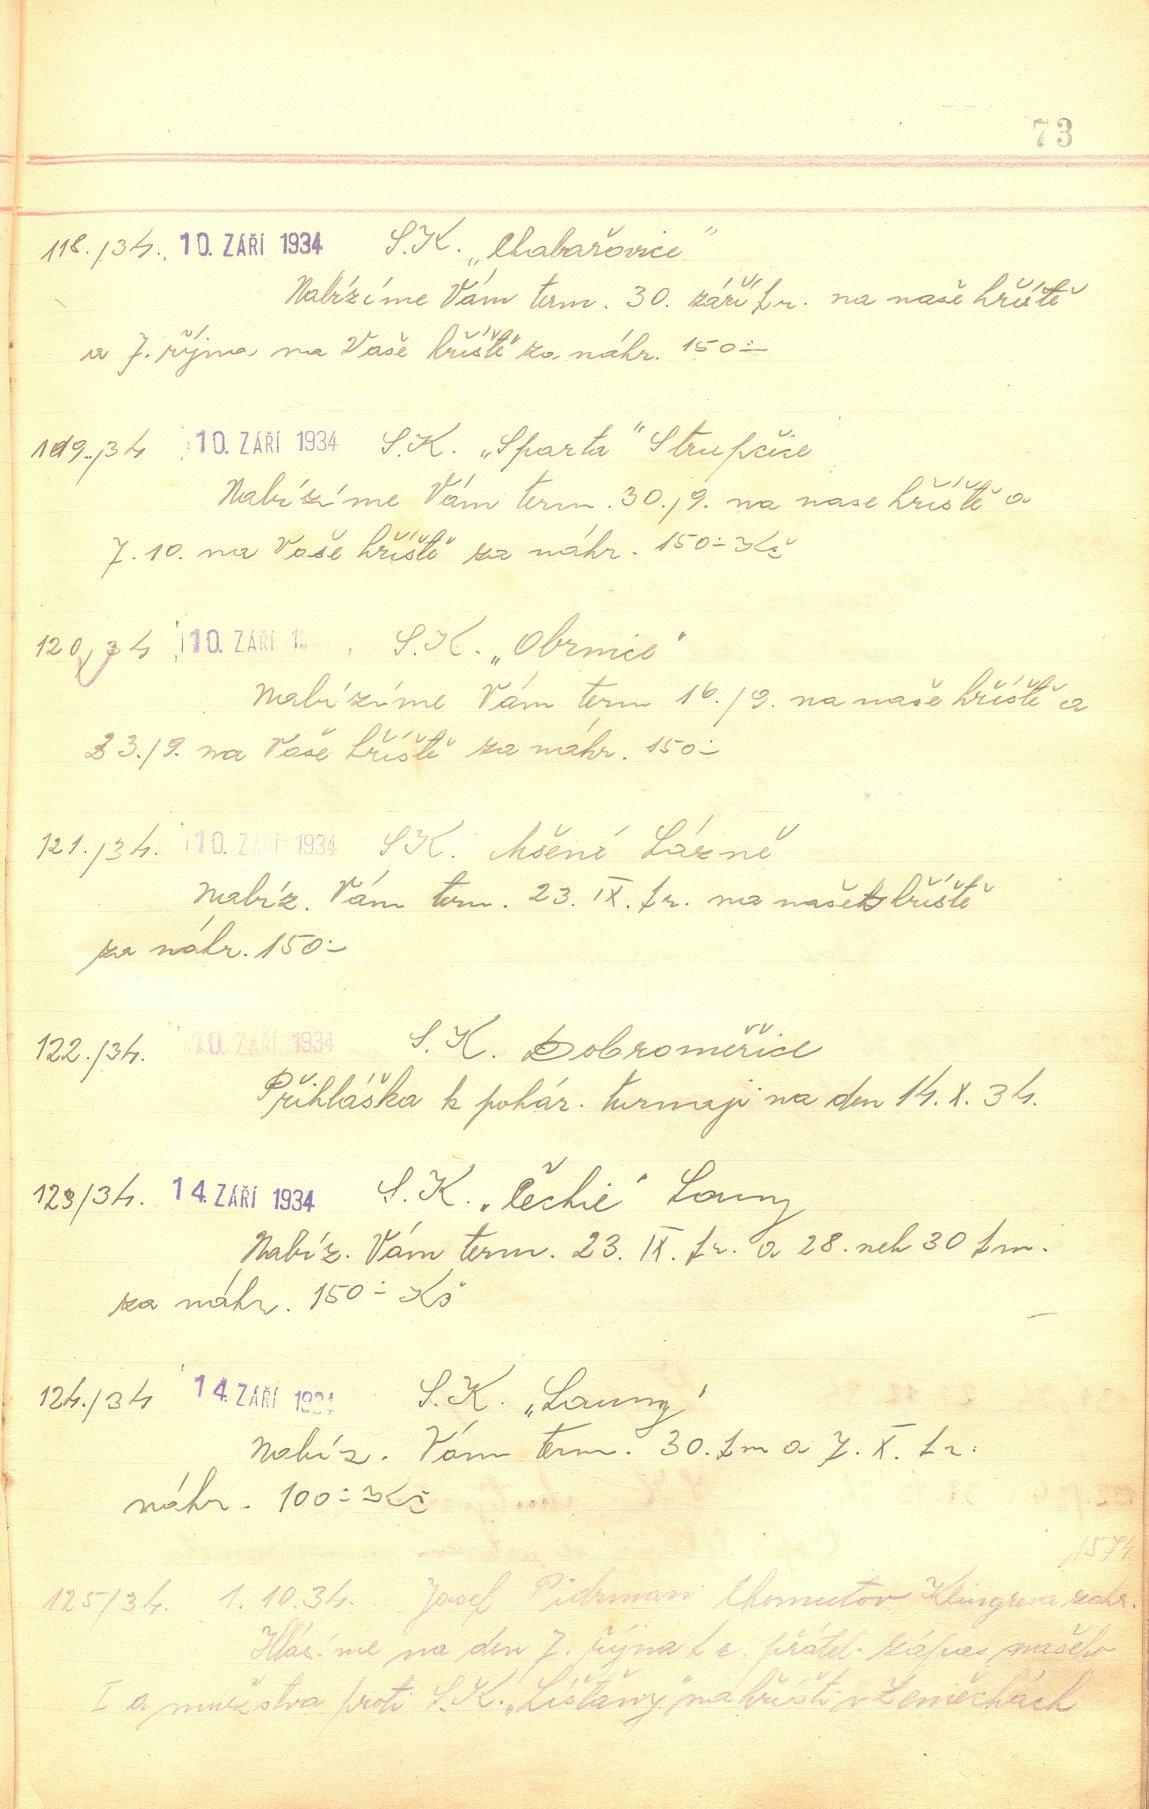 73
118./34. 10. ZÁŘÍ 1934 S.K. „Chabařovice"
Nabízíme Vám term. 30. září t.r. na naše hříště
a 7. října na Vaše hříště za náhr. 150.–
119./34 10. ZÁŘÍ 1934 S.K. „Sparta" Strupčice
Nabízíme Vám term. 30./9. na nase hříště a
7.10. na Vaše hříště za náhr. 150.– Kč
120/34 10. ZÁŘÍ 1 S.K. „Obrnice"
Nabízíme Vám term 16./9. na naše hříště a
23./9. na Vaše hříště za náhr. 150.–
121./34. 10. ZÁŘÍ 1934 SK. Mšené Lázně
Nabíz. Vám term. 23. IX. t.r. na naše hříště
za náhr. 150.–
122./34. 10. ZÁŘÍ 1934 S.K. Dobroměřice
Přihláška k pohár. turnaji na den 14. X. 34.
123/34. 14. ZÁŘÍ 1934 S.K. „Čechie" Louny
Nabíz. Vám term. 23. IX. t.r. a 28. neb 30 t.m.
za náhr. 150.– Kč
124./34 14. ZÁŘÍ 1934 S.K. „Louny"
Nabíz. Vám term. 30. t.m a 7. X. t.r.
náhr. 100.– Kč
125/34. 1. 10. 34. Josef Chomutov zahr.
Hlásíme na den 7. října t.r. přátel. zápas našeho
I a mužstva proti S.K. „Líšťany" na hřišti v Žeměchách